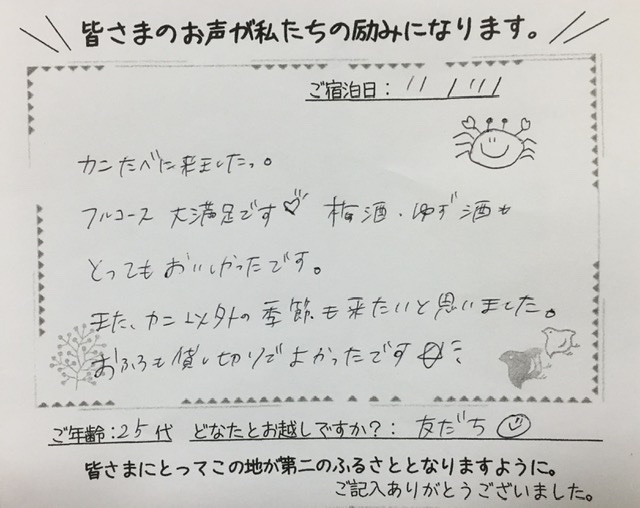 皆さまのお声が私たちの励みになります。
ご宿泊日: 11 /
カニたべに来ましたっ。
フルコース 大満足です♡ 梅酒・ゆず酒も
とってもおいしかったです。
また、カニ以外の季節も来たいと思いました。
おふろも貸し切りでよかったです
ご年齢:25代 どなたとお越しですか?: 友だち
皆さまにとってこの地が第二のふるさととなりますように。
ご記入ありがとうございました。